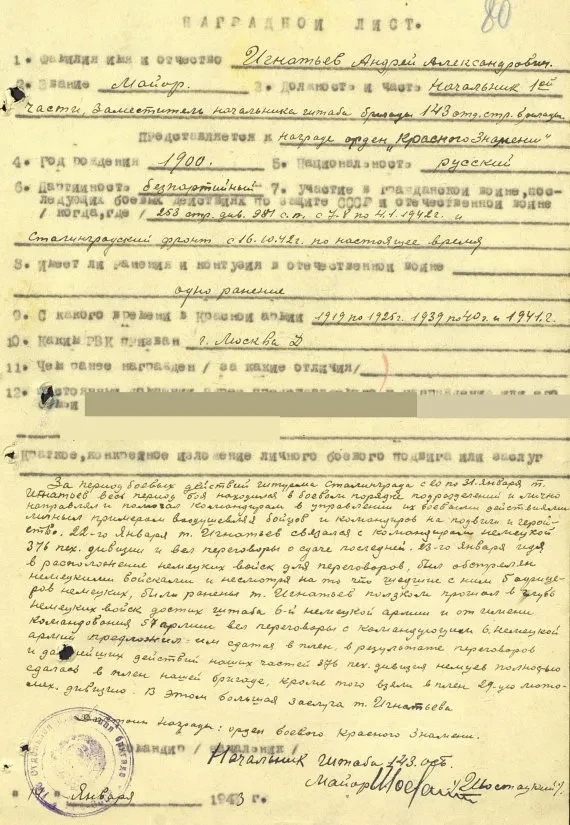 НАГРАДНОЙ ЛИСТ.
80
1. Фамилия имя и отчество Игнатьев Андрей Александрович.
2. Звание Майор. 3. Должность и часть Начальник 1ей
части, заместитель начальника штаба бригады 143 отд. стр. бригады
Представляется к награде орден "Красного Знамени"
4. Год рождения 1900. 5. Национальность русский
6. Партийность безпартийный 7. участие в гражданской войне, пос-
ледующих боевых действиях по защите СССР и отечественной войне
/ когда, где / 253 стр. див. 981 с.п. с 7.8 по 4.1.1942 г. и
Сталинградский фронт с 16.10.42г. по настоящее время
8. Имеет ли ранения и контузия в отечественной войне
одно ранение
9. С какого времени в Красной армии 1919 по 1925г. 1939 по 40г. и 1941.г.
10. Каким РВК призван г. Москва Д
11. Чем ранее награжден / за какие отличия/
12.
семьи
Краткое, конкретное изложение личного боевого подвига или заслуг
За период боевых действий штурма Сталинграда с 20 по 31. Января т.
Игнатьев весь период боя находился в боевом порядке подразделений и лично
направлял и помогал командирам в управлении их боевыми действиями
личным примером воодушевляя бойцов и командиров на подвиги и герой-
ство. 22-го Января т. Игнатьев связался с командирам немецкой
376 пех. дивизии и вел переговоры о сдаче последней. 23-го января идя
в расположение немецких войск для переговоров, был обстрелян
немецкими войсками и несмотря на то что шедшие с ним 6 офице-
ров немецких, были ранены т. Игнатьев ползком прошел в глубь
немецких войск достих штаба 6-й немецкой армии и от имени
командования 57 армии вел переговоры с командующим 6. немецкой
армии предложил им сдатся в плен, в результате переговоров
и дальнейших действий наших частей 376 пех. дивизия немцев полностью
сдалась в плен нашей бригаде, кроме того взяли в плен 29-ую мото-
мех. дивизию. В этом большая заслуга т. Игнатьева
награды: орден боевого Красного Знамени.
Командир / начальник /
Начальник штаба 143. осб.
Майор /Шостацкий/.
" " Января 1943 г.